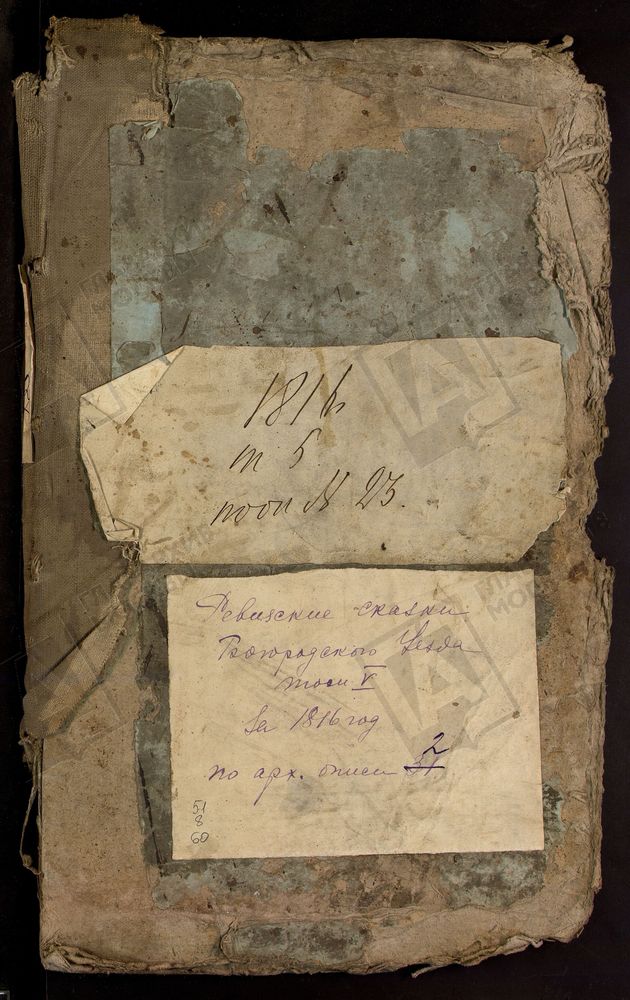 1816
т 5
по оп № 23.
Ревизские сказки
Богородского Уезда
том V
за 1816 год
по арх. описи 2
51
8
60